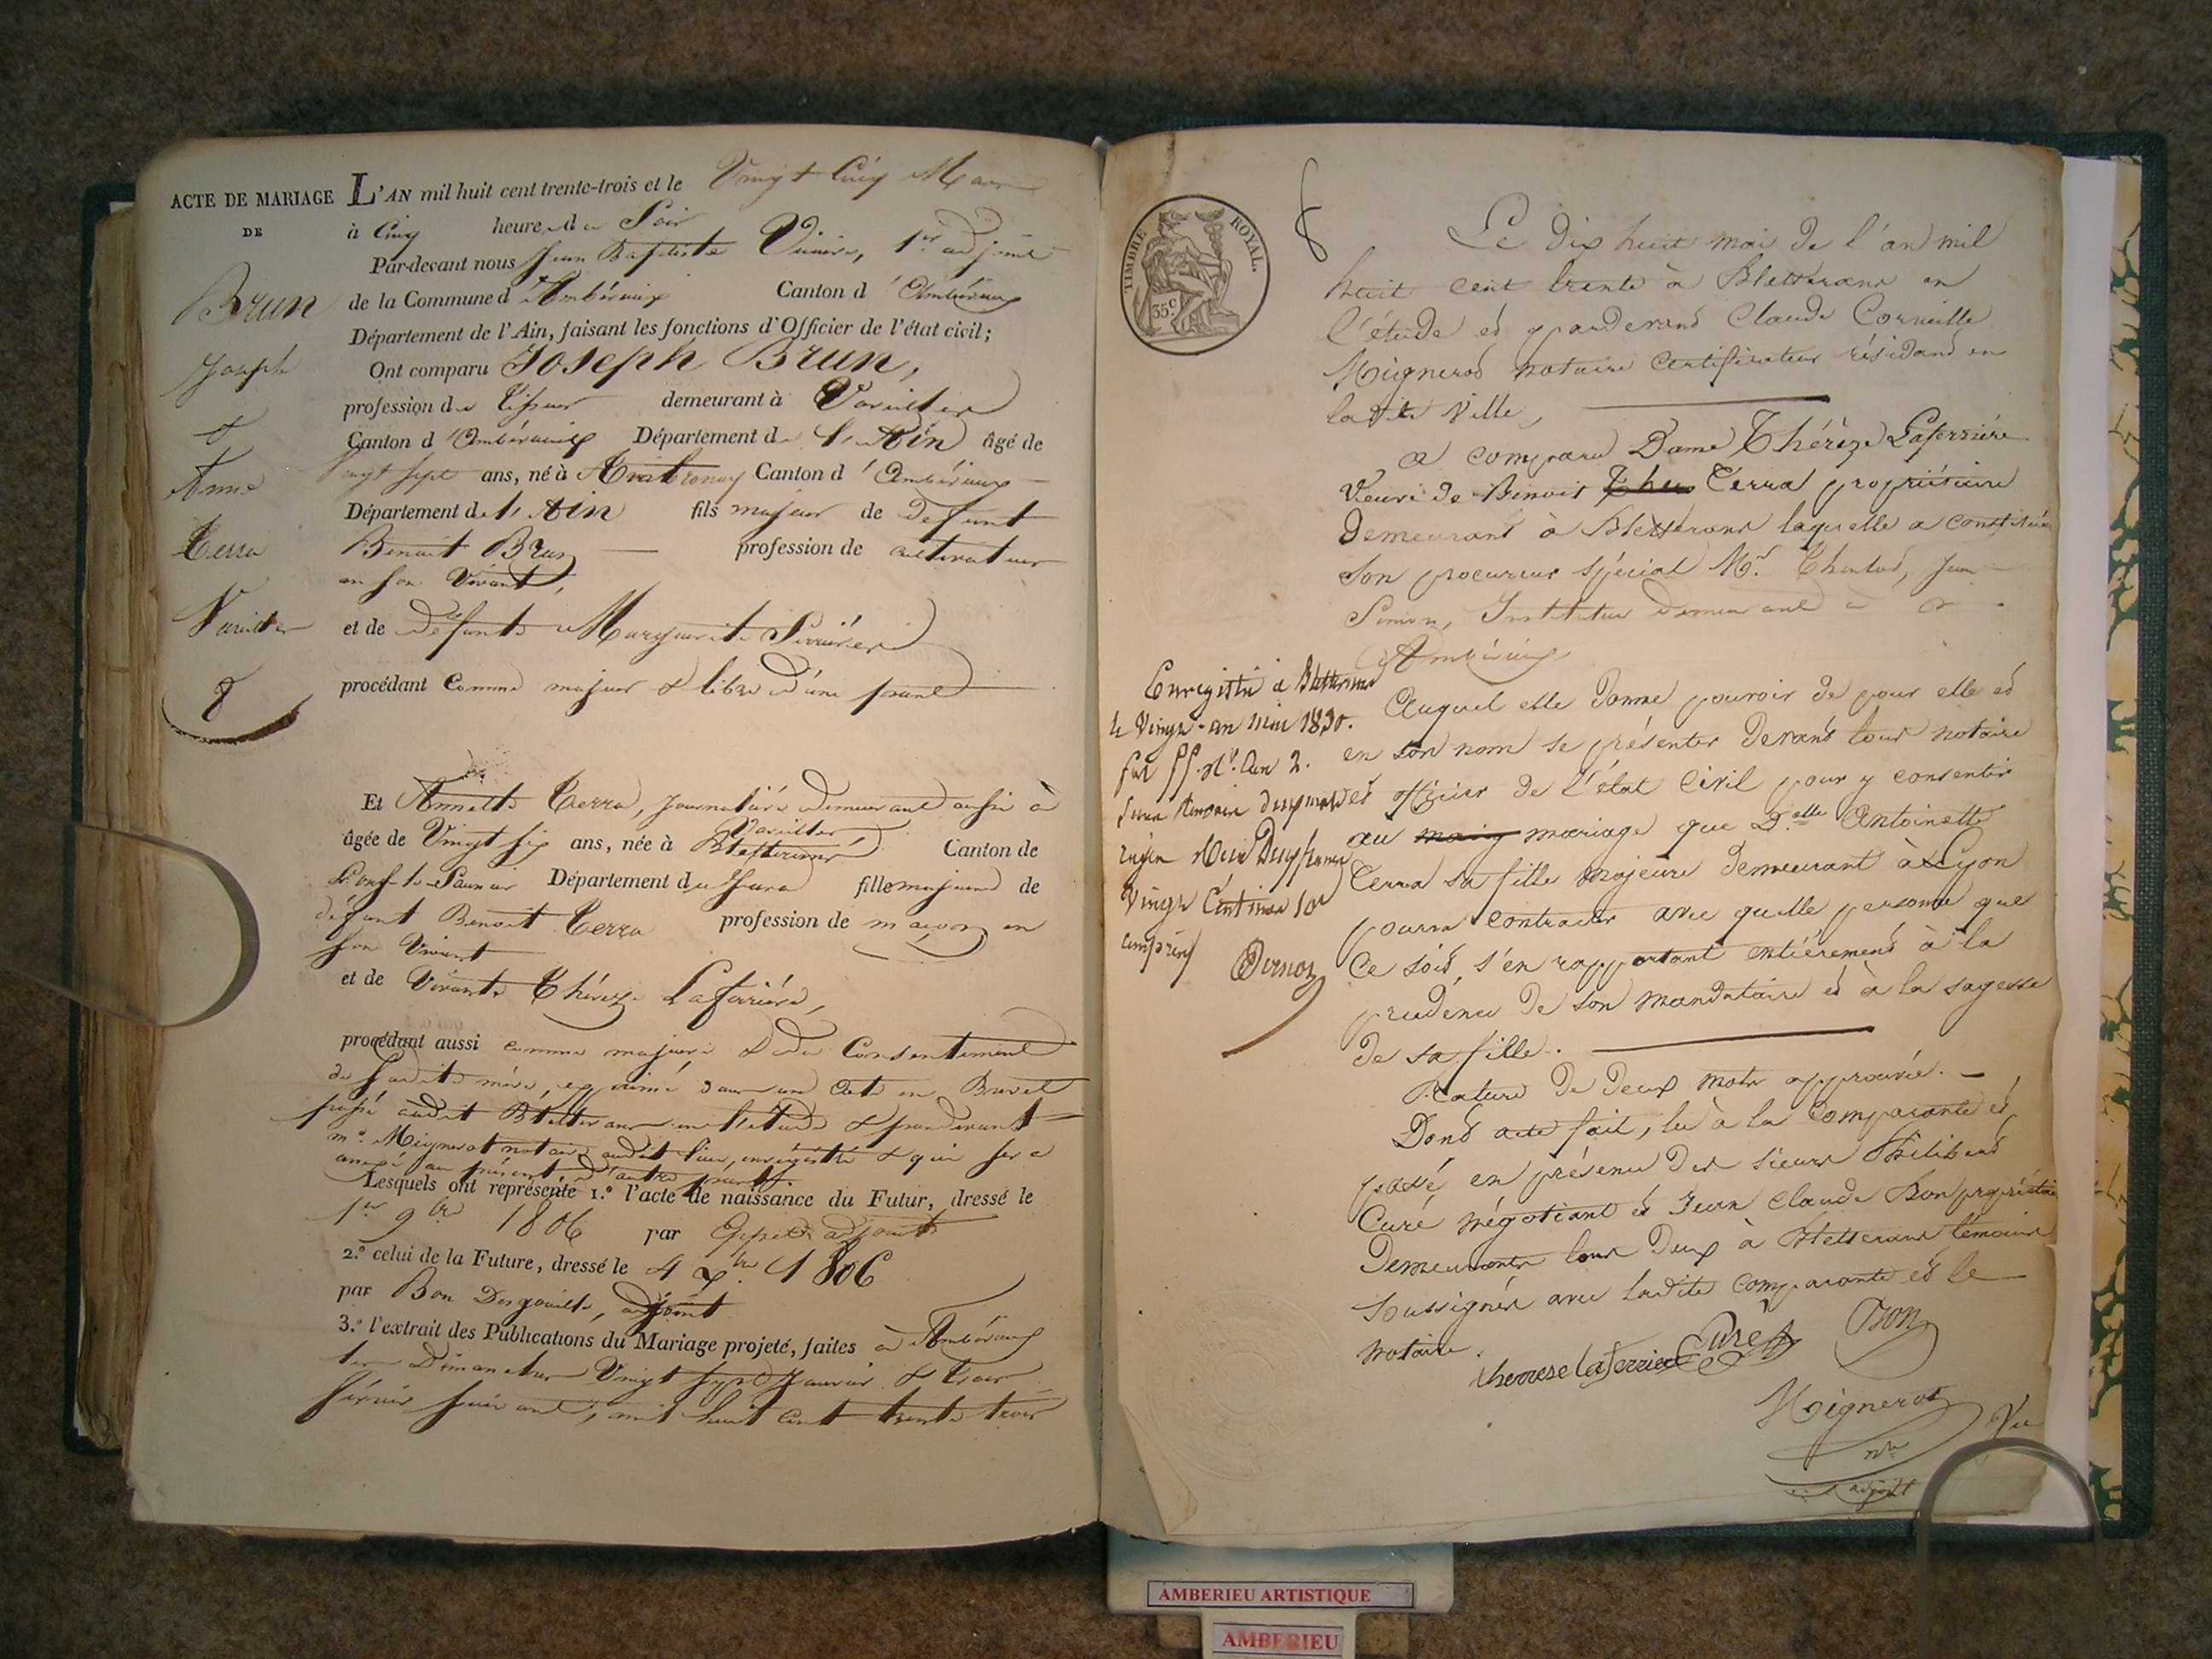 ACTE DE MARIAGE
DE
Brun
Joseph
&
Anne
Terra
Vareilles
8
L'AN mil huit cent trente-trois et le Vingt Cinq Mars
à Cinq heures du Soir
Par-devant nous Jean Baptiste 1er adjoint
de la Commune d'Ambérieux Canton d'Ambérieux
Département de l'Ain, faisant les fonctions d'Officier de l'état civil;
Ont comparu Joseph Brun,
profession de Tisseur demeurant à Vareilles
Canton d'Ambérieux Département de l'Ain âgé de
vingt sept ans, né à Ambronay Canton d'Ambérieux
Département de l'Ain fils majeur de defunt
Benoit Brun profession de cultivateur
en son Vivant,
et de défunte Marguerite
procédant Comme majeur & libre d'une part
Et Annette Terra, Journalière demeurant aussi à
Vareilles
âgée de Vingt six ans, née à Bletterans Canton de
Lons-le-Saunier Département du Jura fille majeure de
défunt Benoit Terra profession de maçon en
son Vivant
et de Vivante Thérèze Laferrière,
procédant aussi comme majeure & du Consentement
de sadite mère, exprimé dans un acte en Brevet
passé audit Bletterans en l'étude & pardevant
me. Mignerot notaire audit lieu, enregistré & qui sera
annexé au présent d'autre part.
Lesquels ont représenté 1.° l'acte de naissance du Futur, dressé le
1er 9bre 1806 par adjoint
2.° celui de la Future, dressé le 4 1806
par Bon Desgouilles, adjoint
3.° l'extrait des Publications du Mariage projeté, faites à Ambérieux
les Dimanches Vingt sept Janvier & trois
février suivant, mil huit cent trente trois
TIMBRE ROYAL.
35c
8
Le dix huit mai de l'an mil
huit cent trente à Bletterans en
l'étude et pardevant Claude Corneille
Mignerot notaire certificateur résidant en
la dte ville,
a comparu Dame Thérèze Laferrière
Veuve de Benoit Ther Terra propriétaire
Demeurant à Bletterans laquelle a constitué
Son procureur spécial Mr. Jean
Simon, Instituteur demeurant à
Ambérieux
Auquel elle donne pouvoir de pour elle et
en son nom se présenter devant tous notaire
et officier de l'état civil pour y consentir
au maig mariage que Delle Antoinette
Terra sa fille majeure demeurant à Lyon
pourra contracter avec quelle personne que
Ce soit, s'en rapportant entièrement à la
prudence de son mandataire et à la sagesse
de sa fille.
Rature de deux mots approuvée.
Dont acte fait, lu à la comparante et
passé en présence des sieurs Philibert
Curé négotiant et Jean Claude Bon propriétaire
Demeurants tous deux à Bletterans témoins
Soussignés avec ladite comparante et le
notaire.
Enregistré à Bletterans
le Vingt-un mai 1830.
Vingt Centimes 10e
compris
therrese laferriere
Curé
Bon
Mignerot
nre
Vu
adjoint
AMBERIEU ARTISTIQUE
AMBERIEU